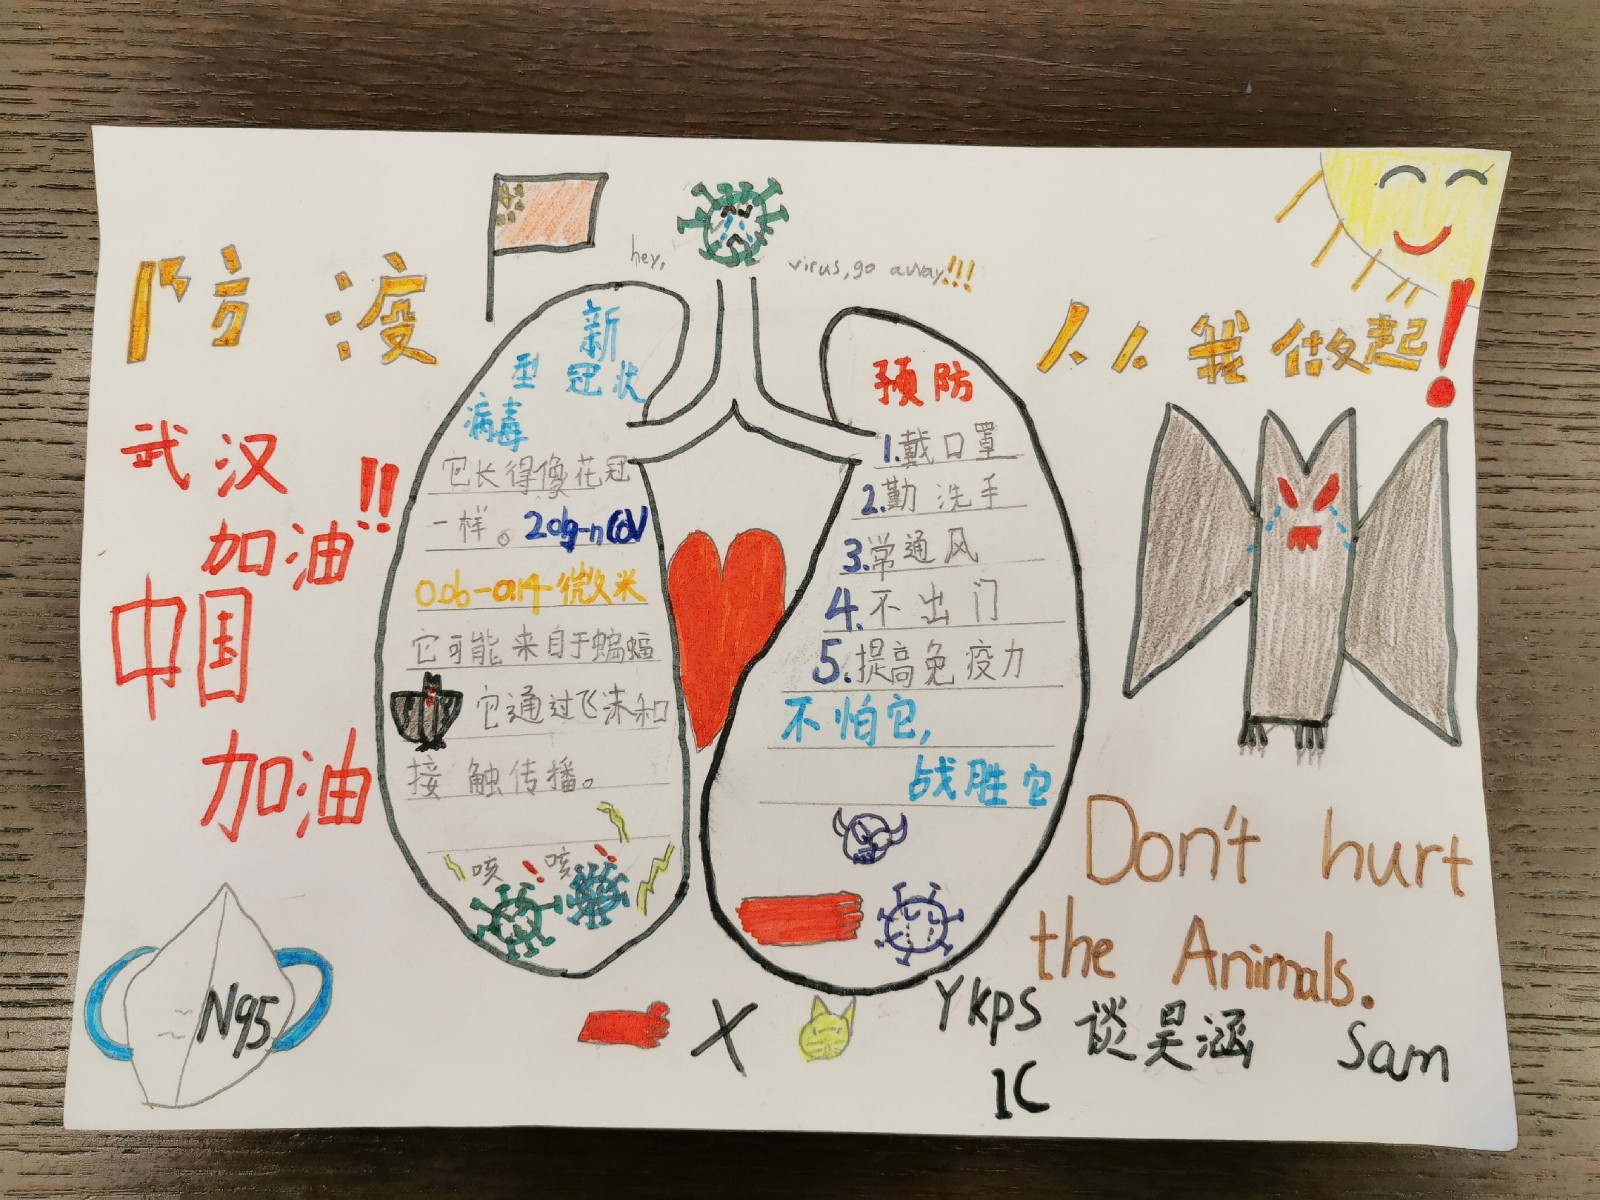 防疫
从我做起!
hey,
virus, go away!!!
武汉
加油!!
中国
加油
新
型冠状
病毒
它长得像花冠
一样。2019-nCoV
0.06-0.14微米
它可能来自于蝙蝠
它通过飞沫和
接触传播。
咳!咳!
预防
1.戴口罩
2.勤洗手
3.常通风
4.不出门
5.提高免疫力
不怕它,
战胜它
Don't hurt
the Animals.
N95
X
YKPS 谈昊涵 Sam
1C